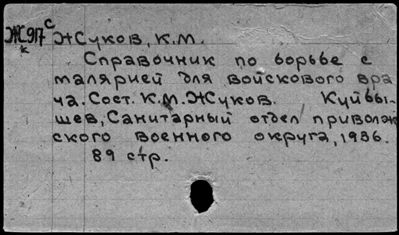 Ж917 с Жуков, К.М.
к
Справочник по борьбе с
малярией для войскового вра
ча. Сост. К.М. Жуков. Куйбы-
шев, Санитарный отдел приволж
ского военного округа, 1936.
89 стр.